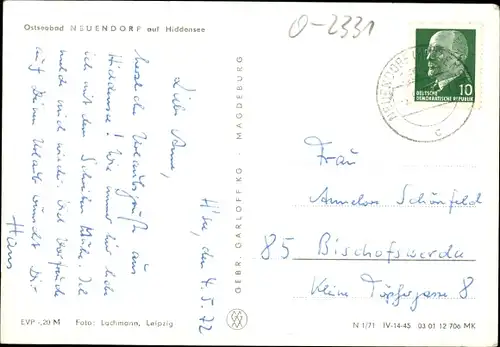 Ostseebad NEUENDORF auf Hiddensee
O-2331
DEUTSCHE
DEMOKRATISCHE REPUBLIK
10
C
H'see, den 4.5.72
Liebe Anne,
herzliche Urlaubsgrüße aus
Hiddensee! Wie immer hier habe
ich mit dem Schreiben Mühe. Ich
melde mich wieder.
auf Deinen Urlaub wünscht Dir
Hans
GEBR. GARLOFF KG. - MAGDEBURG
Frau
Annelore Schönfeld
85 Bischofswerda
Kleine Töpfergasse 8
EVP -,20 M Foto: Lachmann, Leipzig
N 1/71 IV-14-45 03 01 12 706 MK